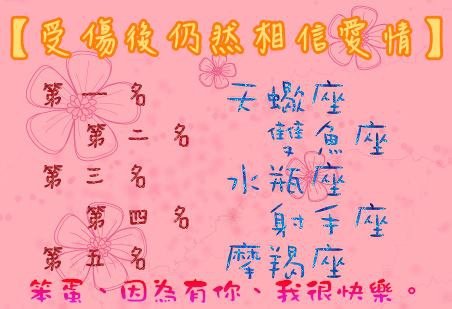 【受傷後仍然相信愛情】
第一名 天蠍座
第二名 雙魚座
第三名 水瓶座
第四名 射手座
第五名 摩羯座
笨蛋、因為有你、我很快樂。